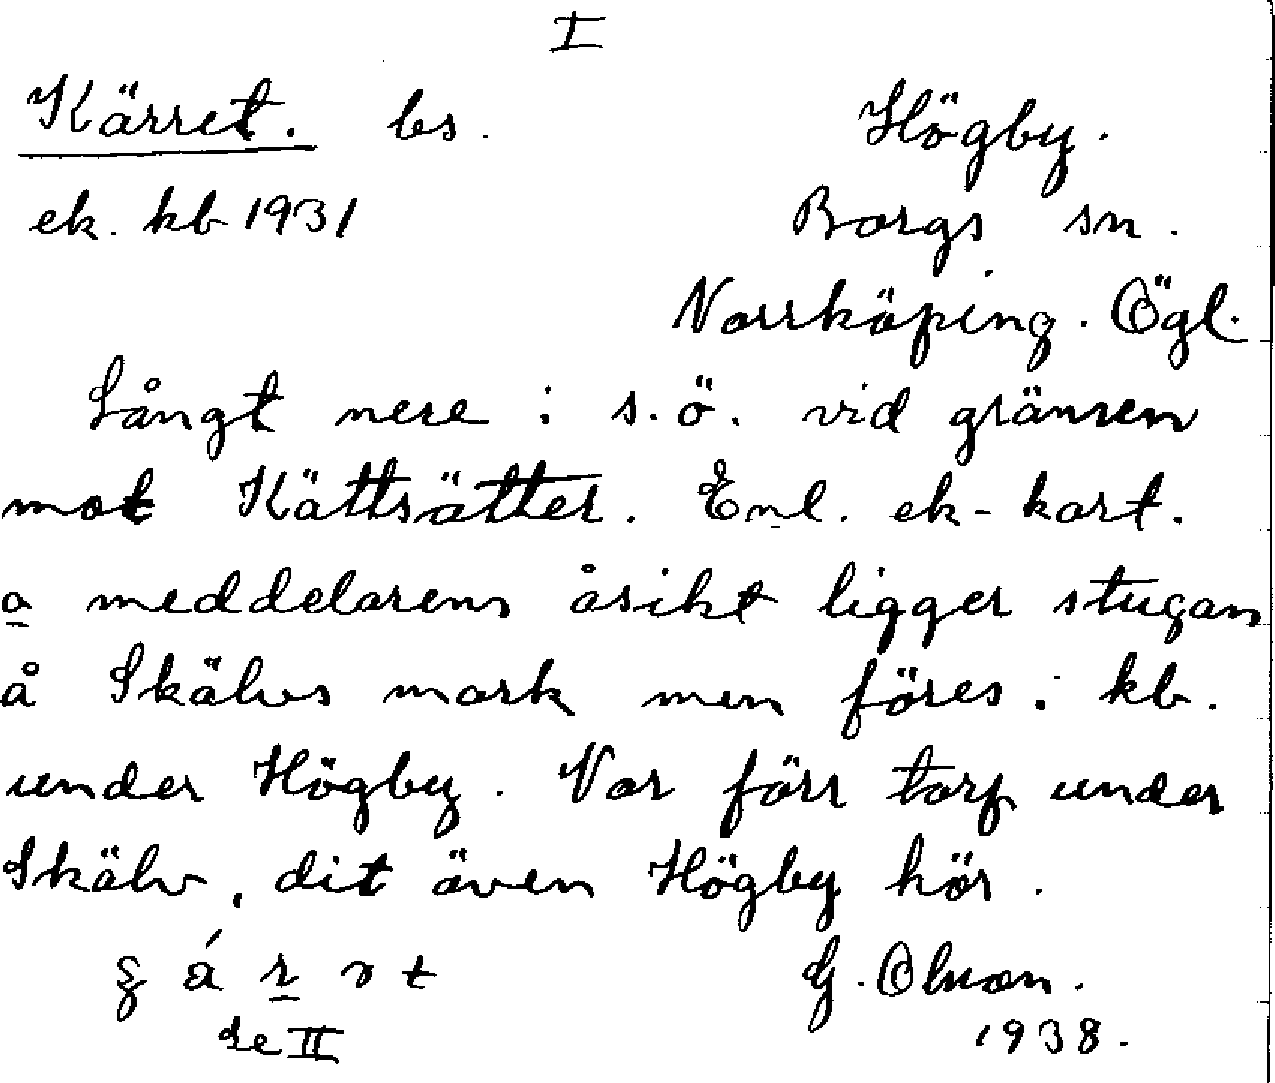 I
Kärret. bs. Högby.
ek. kb 1931 Borgs sn.
Norrköping. Ögl.
Långt nere i s.ö. vid gränsen
mot Kättsätter. Enl. ek-kart.
o meddelarens åsikt ligger stugan
å Skälvs mark men föres i kb.
under Högby. Var förr torp under
Skälv, dit även Högby hör.
G. Olsson.
se II 1938.